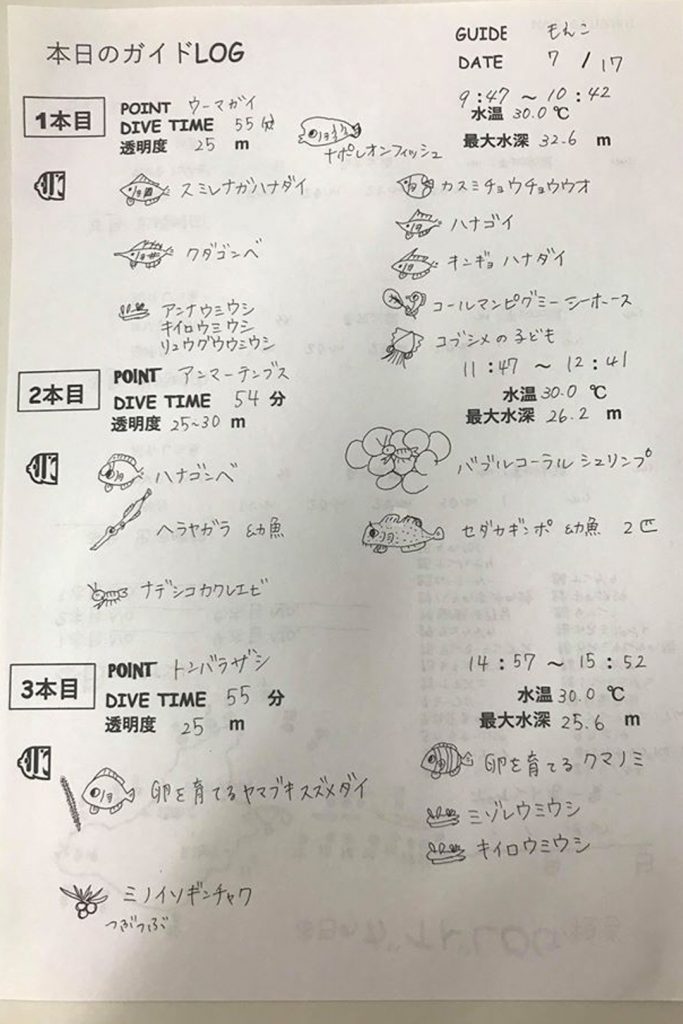 本日のガイドLOG
GUIDE もんこ
DATE 7/17
1本目
POINT ウーマガイ
DIVE TIME 55分
透明度 25 m
9:47 ~ 10:42
水温 30.0℃
最大水深 32.6 m
ナポレオンフィッシュ
スミレナガハナダイ
カスミチョウチョウウオ
ハナゴイ
クダゴンベ
キンギョハナダイ
アンナウミウシ
キイロウミウシ
リュウグウウミウシ
コールマンピグミーシーホース
コブシメの子ども
2本目
POINT アンマーテンブス
DIVE TIME 54 分
透明度 25~30 m
11:47 ~ 12:41
水温 30.0 ℃
最大水深 26.2 m
ハナゴンベ
バブルコーラルシュリンプ
ヘラヤガラ 幼魚
セダカギンポ 幼魚 2匹
ナデシコカクレエビ
3本目
POINT トンバラザシ
DIVE TIME 55 分
透明度 25 m
14:57 ~ 15:52
水温 30.0 ℃
最大水深 25.6 m
卵を育てるヤマブキスズメダイ
卵を育てる クマノミ
ミゾレウミウシ
キイロウミウシ
ミノイソギンチャク
つぶつぶ